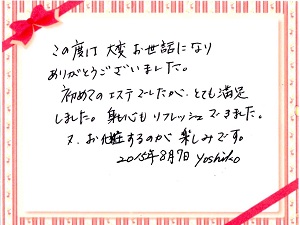 この度は大変お世話になり
ありがとうございました。
初めてのエステでしたが、とても満足
しました。身も心もリフレッシュできました。
又、お化粧するのが楽しみです。
2015年8月7日 yoshiko